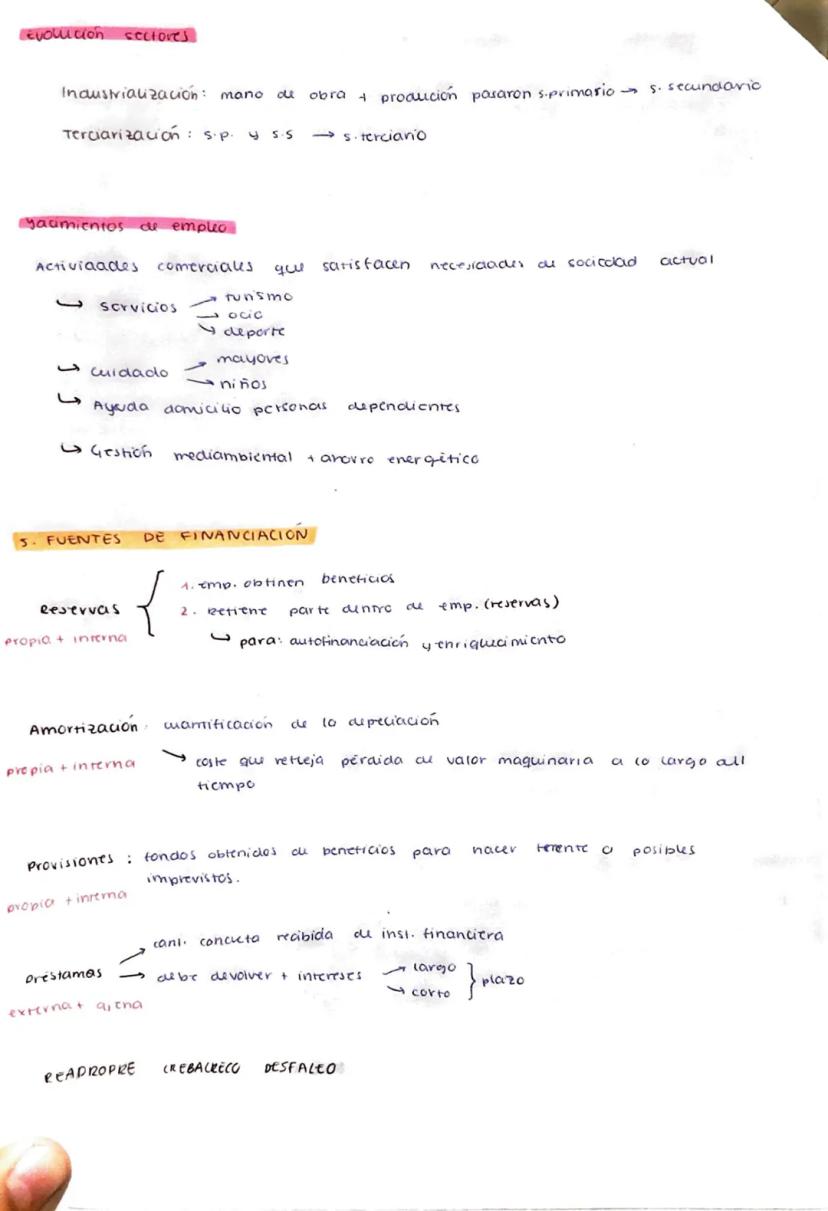 Evolución sectores
Industrialización: mano de obra + produción pasaron s.primario → s. secundario
Terciarización: s.p. y s.s → s.terciario
Yacimientos de empleo
Actividades comerciales que satisfacen necesidades de sociedad actual
↳ servicios → turismo
→ ocio
→ deporte
↳ cuidado → mayores
→ niños
↳ Ayuda domicilio personas dependientes
↳ Gestión mediambiental + ahorro energético
5. FUENTES DE FINANCIACIÓN
Reservas { 1. emp. obtinen beneficios
2. Retiene parte dentro de emp. (reservas)
propia + interna
↳ para: autofinanciación y enriquecimiento
Amortización: cuantificación de la depreciación
propia + interna
→ coste que refleja pérdida de valor maquinaria a lo largo del
tiempo
Provisiones: fondos obtenidos de beneficios para hacer frente a posibles
imprevistos.
propia + interna
→ cant. concreta recibida de inst. financiera
Préstamos → debe devolver + intereses → largo
→ corto } plazo
externa + ajena
READROPRE CREBACRECO DESFALEO